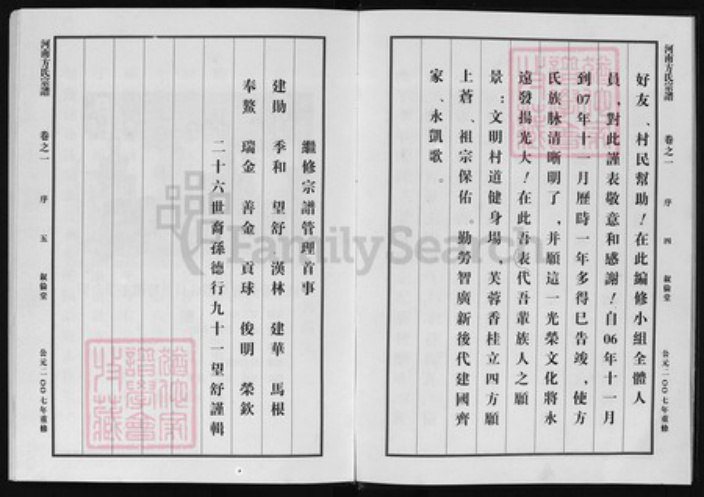 河南方氏宗譜　卷之一　序　四　叙倫堂　公元二〇〇七年重修
好友、村民幫助！在此編修小組全體人
員，對此謹表敬意和感謝！自06年十一月
到07年十一月歷時一年多得已告竣，使方
氏族脉清晰明了，并願這一光榮文化將永
遠發揚光大！在此吾表代吾輩族人之願
景：文明村道健身場、芙蓉香桂立四方願
上蒼、祖宗保佑。勤勞智廣新後代建國齊
家、永凱歌。
繼修宗譜管理首事
建勛　季和　望舒　漢林　建華　馬根
奉鰲　瑞金　善金　貢球　俊明　榮欽
二十六世裔孫德行九十一望舒謹輯
河南方氏宗譜　卷之一　序　五　叙倫堂　公元二〇〇七年重修
FamilySearch